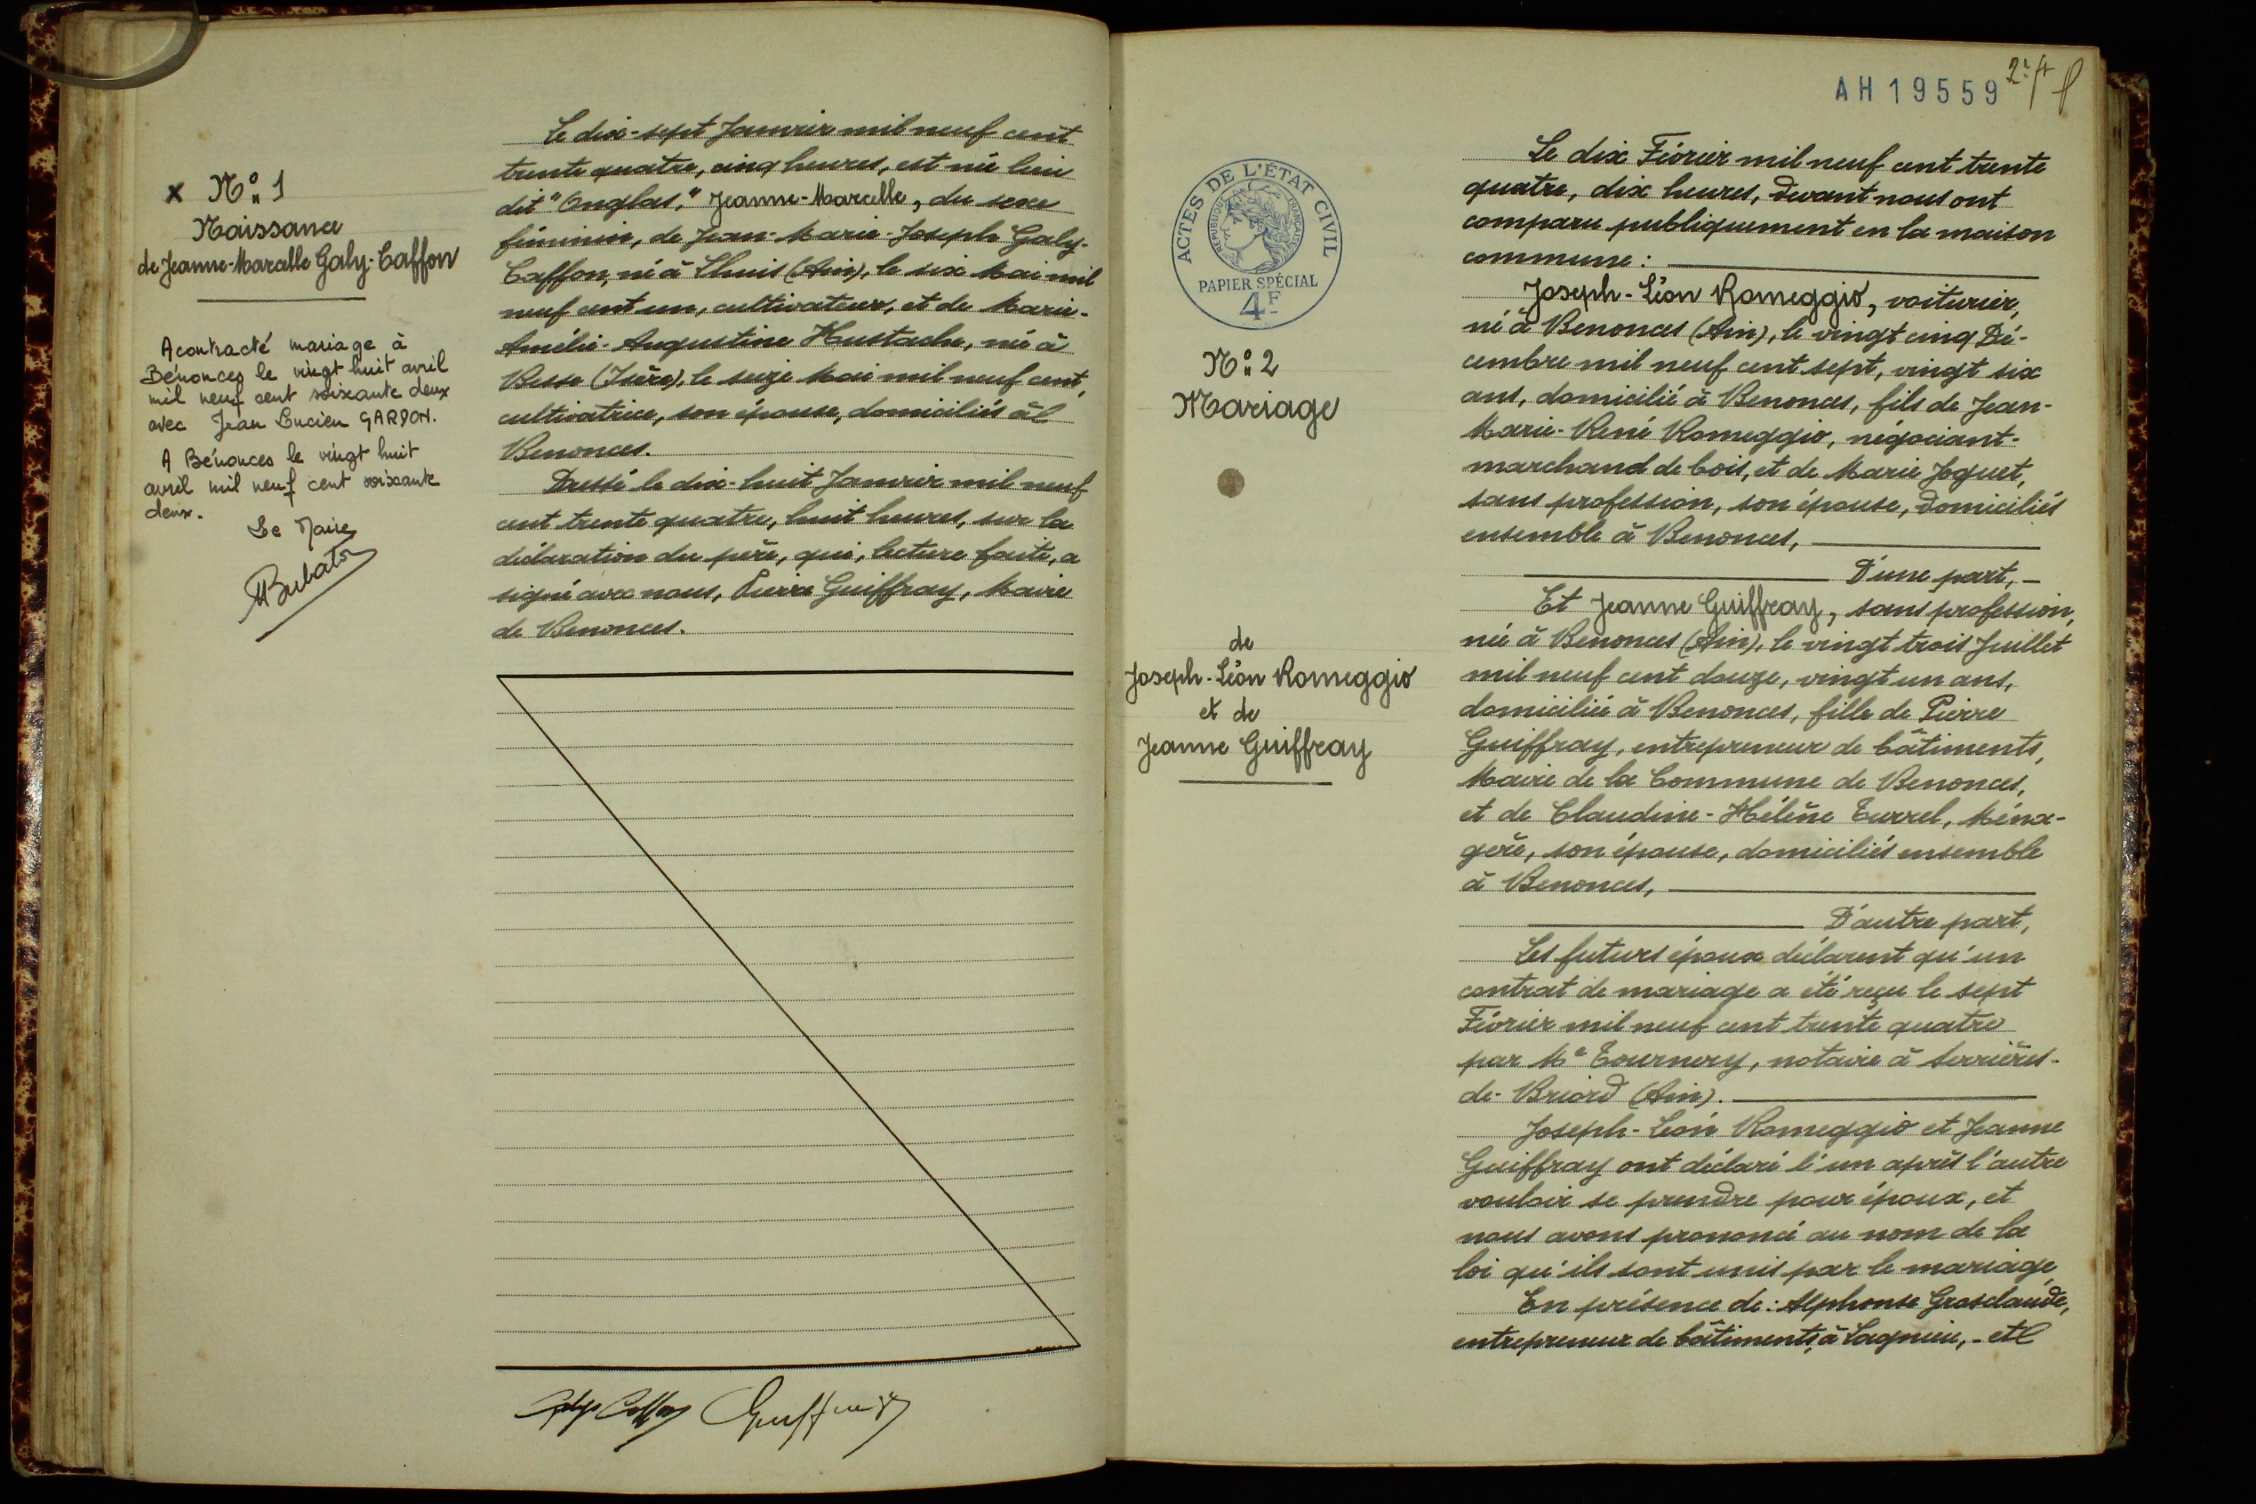 N° 1
Naissance
de Jeanne-Marcelle Galy-Caffon
A contracté mariage à
Bénonces le vingt huit avril
mil neuf cent soixante deux
avec Jean Lucien GARDON.
A Bénonces le vingt huit
avril mil neuf cent soixante
deux.
Le Maire
Le dix-sept Janvier mil neuf cent
trente quatre, cinq heures, est née lieu
dit "Onglas," Jeanne-Marcelle, du sexe
féminin, de Jean-Marie-Joseph Galy-
Caffon, né à Lhuis (Ain), le six Mai mil
neuf cent un, cultivateur, et de Marie-
Amélie-Augustine Hustache, née à
Besse (Isère), le seize Mai mil neuf cent,
cultivatrice, son épouse, domiciliés à
Benonces.
Dressé le dix-huit Janvier mil neuf
cent trente quatre, huit heures, sur la
déclaration du père, qui, lecture faite, a
signé avec nous, Pierre Guiffray, Maire
de Benonces.
Galy Caffon Guiffray
AH 19559
ACTES DE L'ÉTAT CIVIL
RÉPUBLIQUE FRANÇAISE
PAPIER SPÉCIAL
4F
N° 2
Mariage
de
Joseph-Léon Romeggio
et de
Jeanne Guiffray
Le dix Février mil neuf cent trente
quatre, dix heures, devant nous ont
comparu publiquement en la maison
commune :
Joseph-Léon Romeggio, voiturier,
né à Benonces (Ain), le vingt cinq Dé-
cembre mil neuf cent sept, vingt six
ans, domicilié à Benonces, fils de Jean-
Marie-René Romeggio, négociant-
marchand de bois, et de Marie Joguet,
sans profession, son épouse, domiciliés
ensemble à Benonces,
D'une part,
Et Jeanne Guiffray, sans profession,
née à Benonces (Ain), le vingt trois Juillet
mil neuf cent douze, vingt un ans,
domiciliée à Benonces, fille de Pierre
Guiffray, entrepreneur de bâtiments,
Maire de la Commune de Benonces,
et de Claudine-Hélène Turrel, Ména-
gère, son épouse, domiciliés ensemble
à Benonces,
D'autre part,
Les futurs époux déclarent qu'un
contrat de mariage a été reçu le sept
Février mil neuf cent trente quatre
par Me Tournery, notaire à Serrières-
de-Briord (Ain).
Joseph-Léon Romeggio et Jeanne
Guiffray ont déclaré l'un après l'autre
vouloir se prendre pour époux, et
nous avons prononcé au nom de la
loi qu'ils sont unis par le mariage
En présence de : Alphonse Grosclaude,
entrepreneur de bâtiments, à Lagnieu, - et